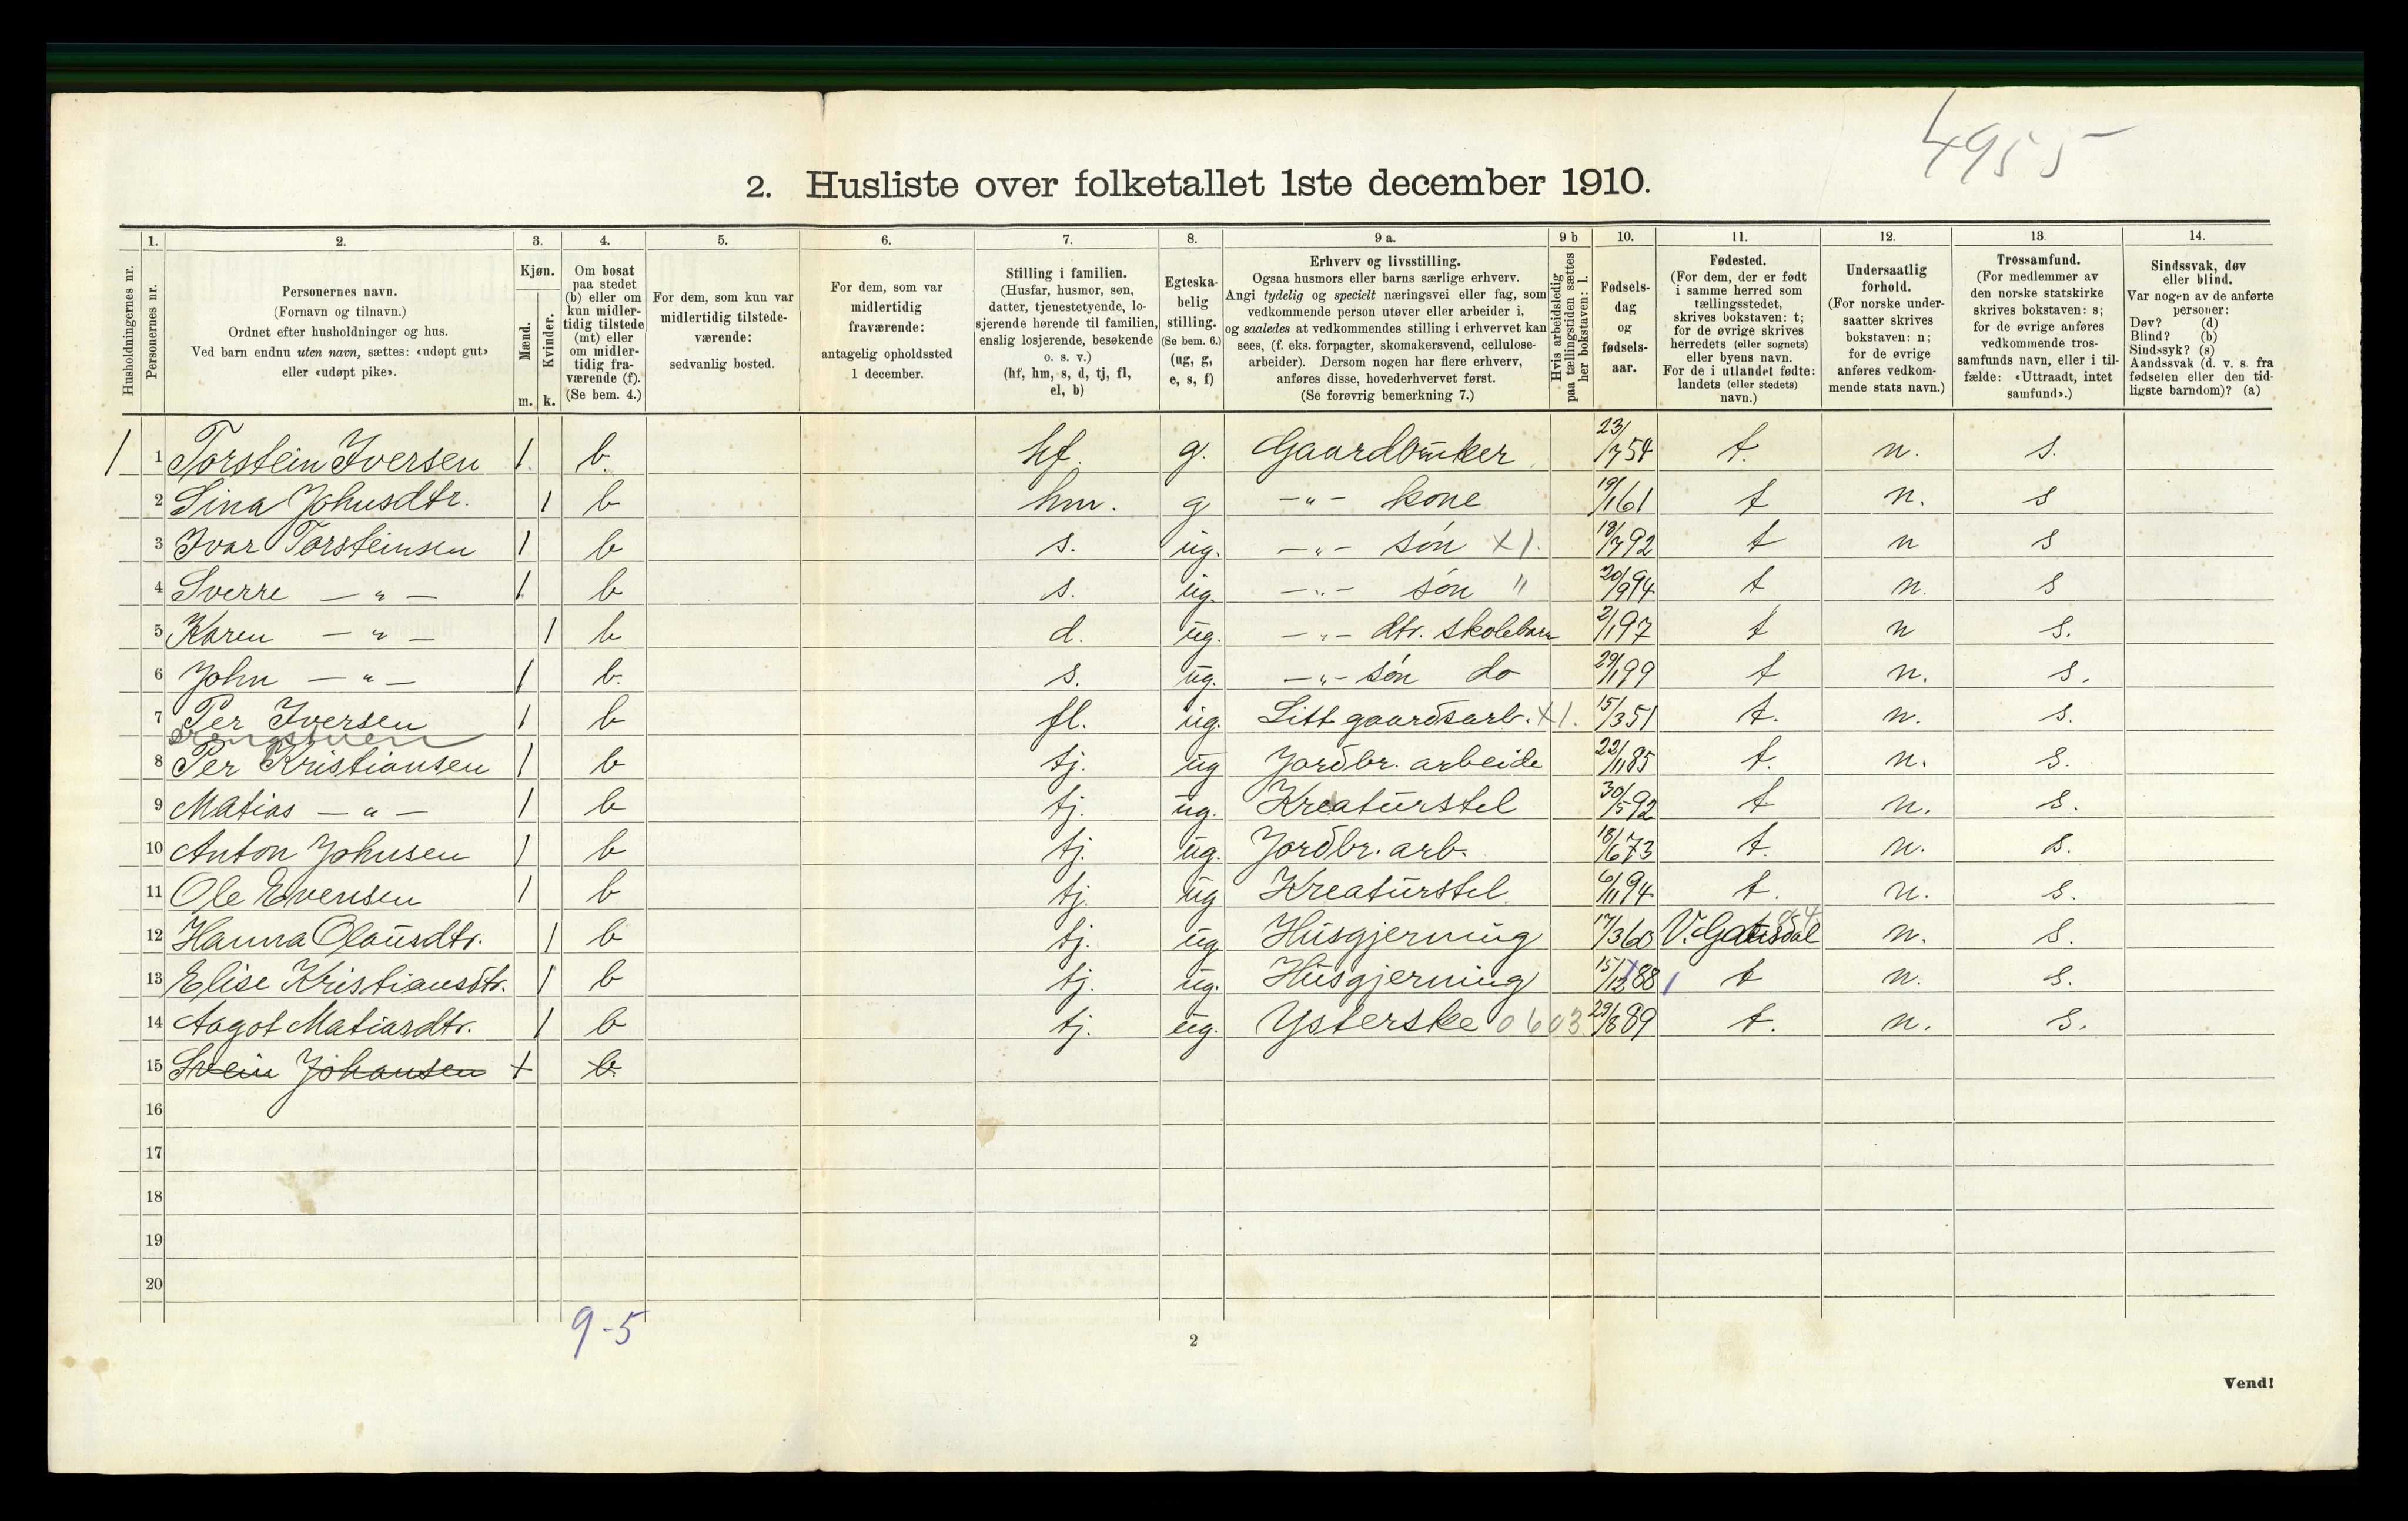 4955
2. Husliste over folketallet 1ste december 1910.
Husholdningernes nr.
1.
Personernes nr.
2.
Personernes navn.
(Fornavn og tilnavn.)
Ordnet efter husholdninger og hus.
Ved barn endnu uten navn, sættes: «udøpt gut»
eller «udøpt pike».
3.
Kjøn.
Mænd.
Kvinder.
m. k.
4.
Om bosat
paa stedet
(b) eller om
kun midler-
tidig tilstede
(mt) eller
om midler-
tidig fra-
værende (f).
(Se bem. 4.)
5.
For dem, som kun var
midlertidig tilstede-
værende:
sedvanlig bosted.
6.
For dem, som var
midlertidig
fraværende:
antagelig opholdssted
1 december.
7.
Stilling i familien.
(Husfar, husmor, søn,
datter, tjenestetyende, lo-
sjerende hørende til familien,
enslig losjerende, besøkende
o. s. v.)
(hf, hm, s, d, tj, fl,
el, b)
8.
Egteska-
belig
stilling.
(Se bem. 6.)
(ug, g,
e, s, f)
9 a.
Erhverv og livsstilling.
Ogsaa husmors eller barns særlige erhverv.
Angi tydelig og specielt næringsvei eller fag, som
vedkommende person utøver eller arbeider i,
og saaledes at vedkommendes stilling i erhvervet kan
sees, (f. eks. forpagter, skomakersvend, cellulose-
arbeider). Dersom nogen har flere erhverv,
anføres disse, hovederhvervet først.
(Se forøvrig bemerkning 7.)
9 b
Hvis arbeidsledig
paa tællingstiden sættes
her bokstaven: l.
10.
Fødsels-
dag
og
fødsels-
aar.
11.
Fødested.
(For dem, der er født
i samme herred som
tællingsstedet,
skrives bokstaven: t;
for de øvrige skrives
herredets (eller sognets)
eller byens navn.
For de i utlandet fødte:
landets (eller stedets)
navn.)
12.
Undersaatlig
forhold.
(For norske under-
saatter skrives
bokstaven: n;
for de øvrige
anføres vedkom-
mende stats navn.)
13.
Trossamfund.
(For medlemmer av
den norske statskirke
skrives bokstaven: s;
for de øvrige anføres
vedkommende tros-
samfunds navn, eller i til-
fælde: «Uttraadt, intet
samfund».)
14.
Sindssvak, døv
eller blind.
Var nogen av de anførte
personer:
Døv? (d)
Blind? (b)
Sindssyk? (s)
Aandssvak (d. v. s. fra
fødselen eller den tid-
ligste barndom)? (a)
1 1 Torstein Iversen 1. b. hf. g. Gaardbruker 23/7 54 t. n. s.
2 Sina Johnsdtr. 1 b hm. g -"- kone 19/1 61 t n. s
3 Ivar Torsteinsen 1 b s. ug. -"- søn X 1. 18/7 92 t n s
4 Sverre -"- 1 b s. ug. -"- søn " 20/9 94 t n. s
5 Karen -"- 1 b d. ug. -"- dtr. skolebarn 2/1 97 t n s.
6 John -"- 1 b. s. ug. -"- søn do 29/1 99 t n. s.
7 Per Iversen 1 b fl. ug. Litt gaardsarb. X 1. 15/3 51 t. n. s.
Drengstuen
8 Per Kristiansen 1 b tj. ug Jordbr. arbeide 22/11 85 t. n. s.
9 Matias -"- 1 b tj. ug. Kreaturstel 30/5 92 t n. s.
10 Anton Johnsen 1 b tj. ug. Jordbr. arb. 18/6 73 t. n. s.
11 Ole Evensen 1 b tj. ug Kreaturstel 6/11 94 t. n. s.
12 Hanna Olausdtr. 1 b tj. ug Husgjerning 17/3 60 V. Gausdal n. s.
13 Elise Kristiansdtr. 1 b tj. ug. Husgjerning 15/12 88 t n. s.
14 Aagot Matiasdtr. 1 b tj. ug. Ysterske 0603 29/8 89 t. n. s.
15 Svein Johansen b
16
17
18
19
20
9-5
2
Vend!